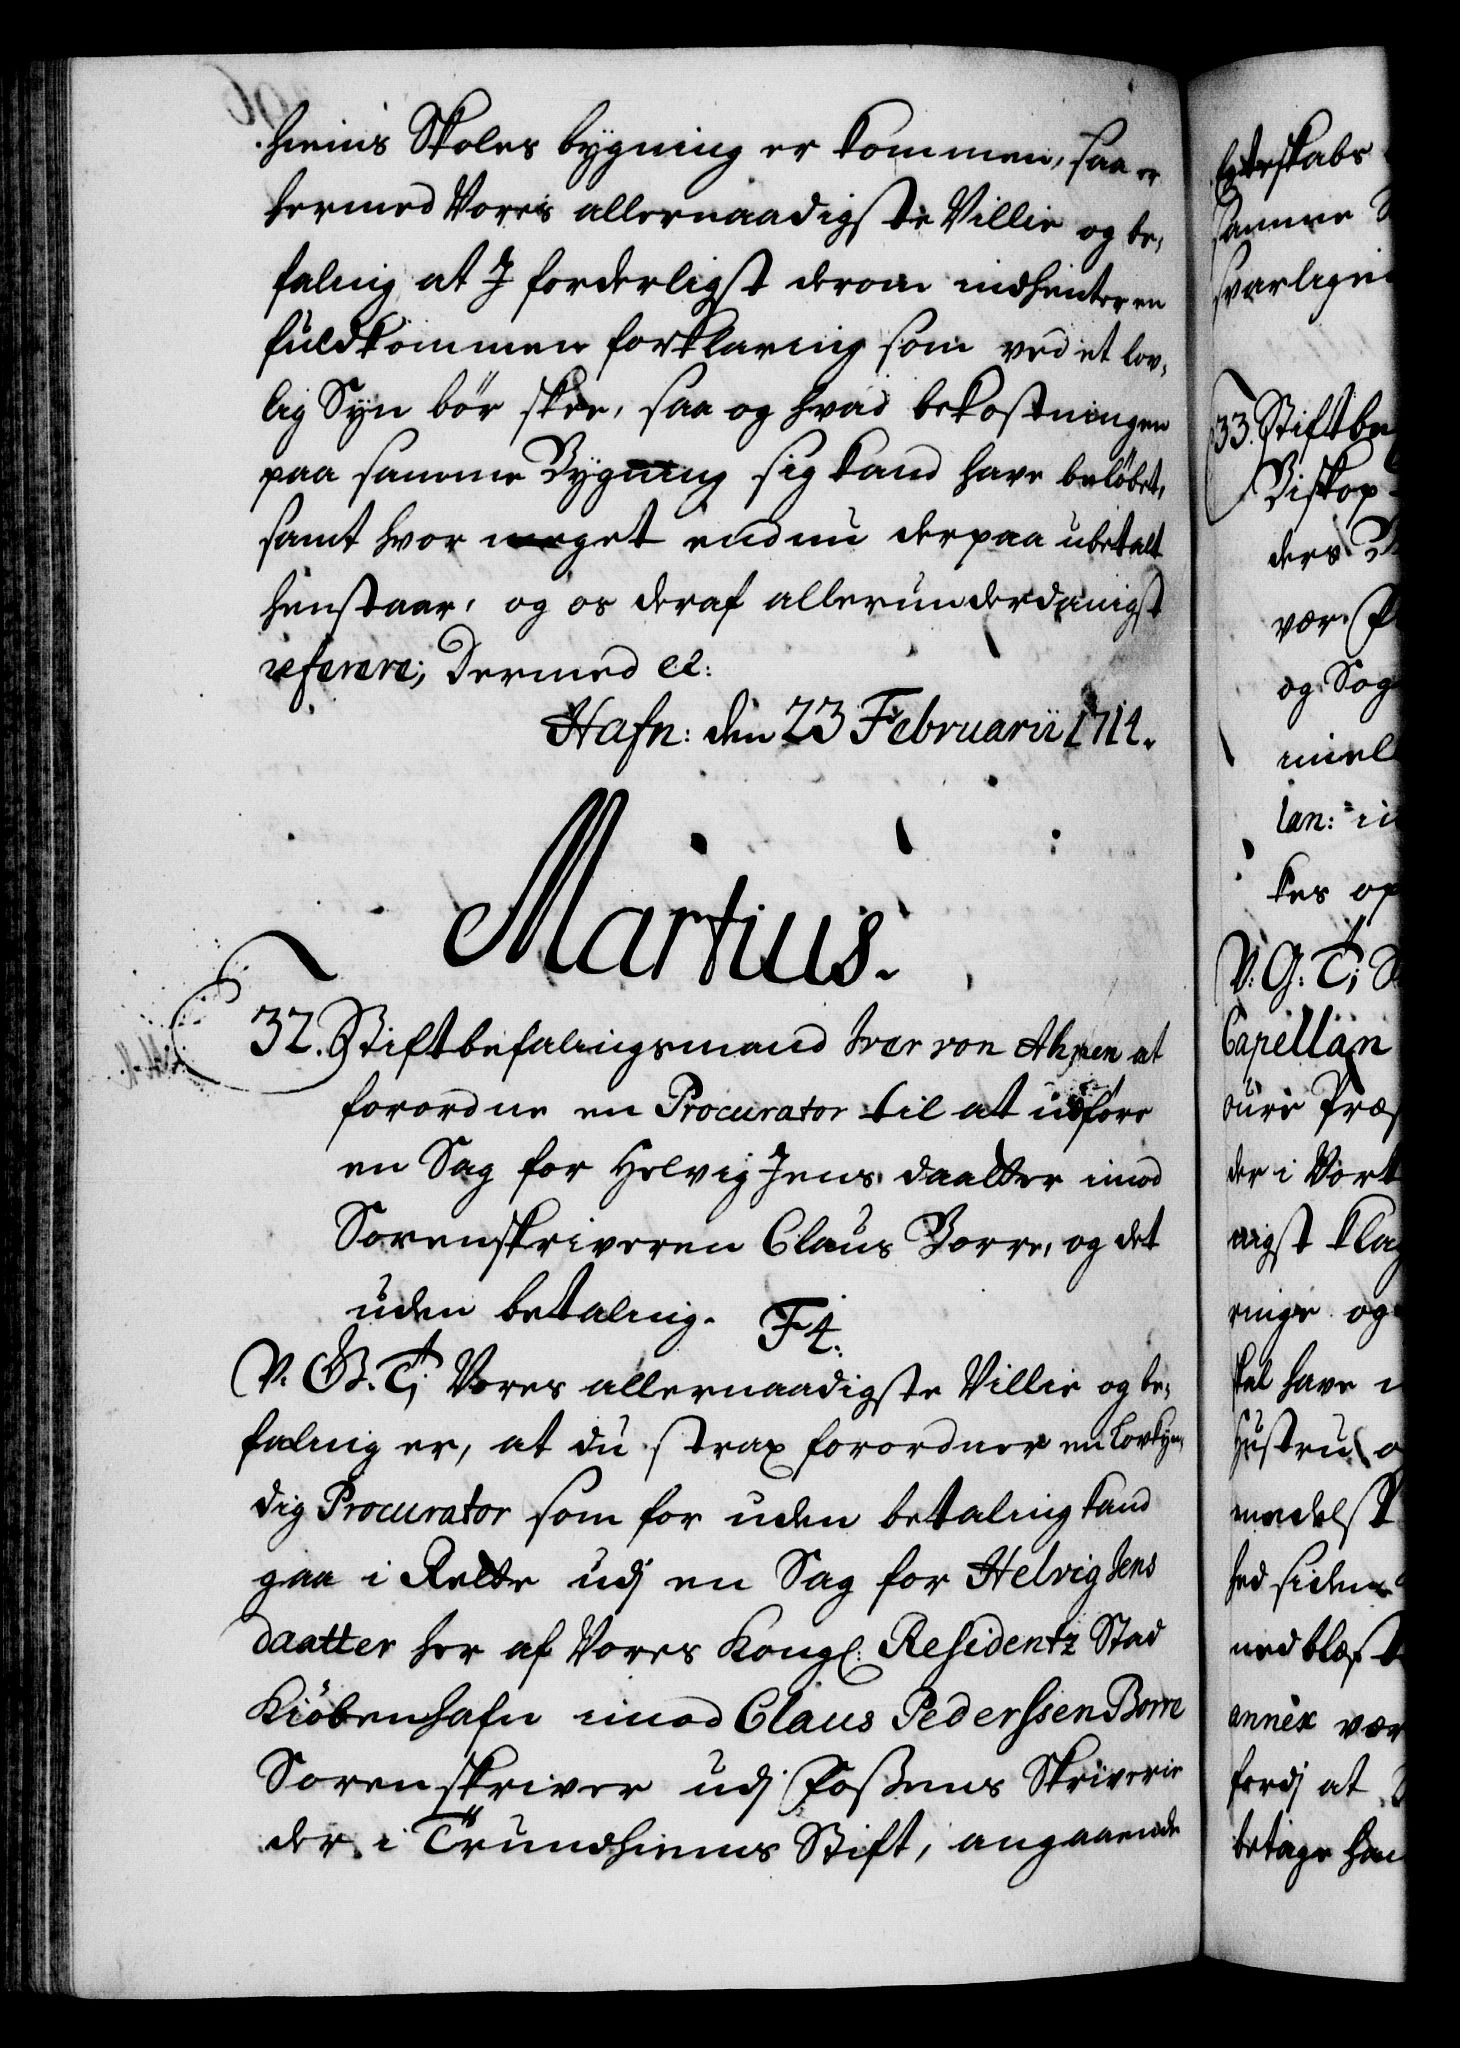 hiems Skoles bygning er kommen, saa er
hermed Vores allernaadigste Villie og be,
faling at I forderligst derom indhenter en
fuldkommen forklaring som ved et lov,
lig Syn bør skee, saa og hvad bekostningen
paa samme Bygning sig kand have beløbet,
samt hvor meget endnu derpaa ubetalt
henstaar, og os deraf allerunderdanigst
referere; Dermed et:
Hafn: den 23 Februarii 1714.
Martius.
32. Stiftbefalingsmand Iver von Ahnen at
forordne en Procurator til at udføre
en Sag for Helvig Jens daatter imod
Sorenskriveren Claus Borre, og det
uden betaling. F 4.
V. G. T; Vores allernaadigste Villie og be,
faling er, at du strax forordner en lovkyn,
dig Procurator som for uden betaling kand
gaa i Rette udj en Sag for Helvig Jens
daatter her af Vores Kongl: Residentz Stad
Kiøbenhafn imod Claus Pederssen Borre
Sorenskriver udj Foßens Skriverie
der i Trundhiems Stift, angaaende
Egteskabs
samme
svarligen
33. Stiftbe
Biskop
ders
vær
og Sog
miel
lan: i
kes op
V. G. T;
Capellan
oure Præ
der i Vort
nigst klag
ringe og
skal have
Hustru
medelst
hed siden
nedblæst
annex vær
fordj at
betage ham